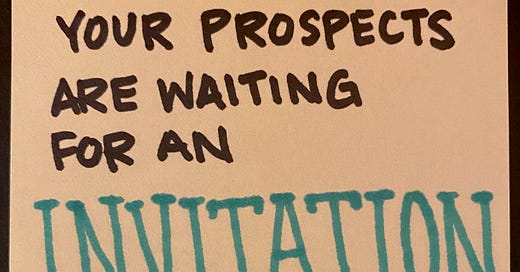 YOUR PROSPECTS
ARE WAITING
FOR AN
INVITATION